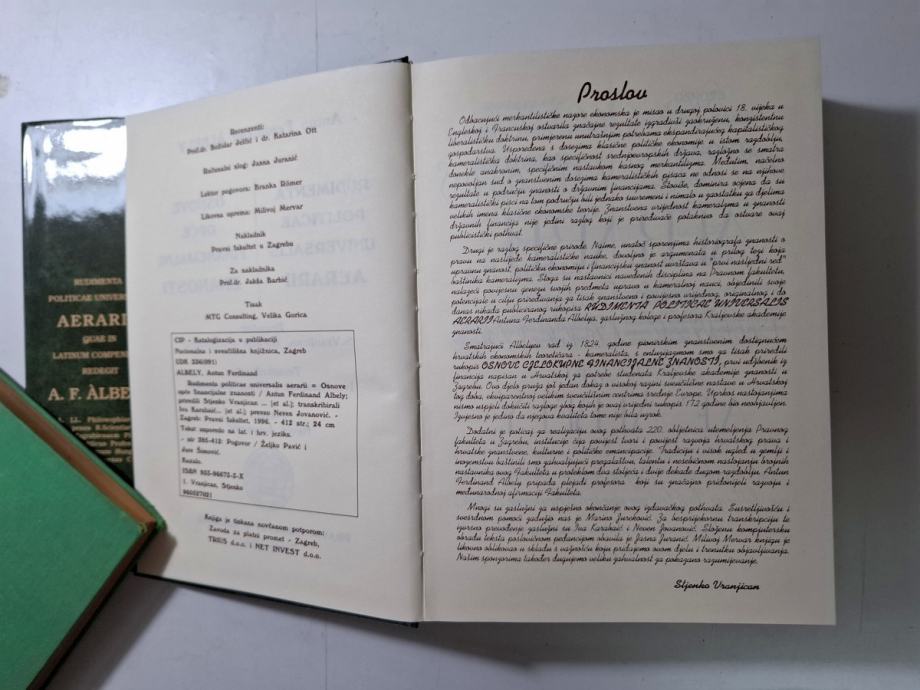 RUDIMENTA
POLITICAE UNIVER
AERARI
QUAE IN
LATINUM COMPEN
REDEGIT
A. F. ÀLBE
Recenzenti:
Prof.dr. Božidar Jelčić i dr. Katarina Ott
Računalni slog: Jasna Juranić
Lektor pogovora: Branka Römer
Likovna oprema: Milivoj Mervar
Nakladnik
Pravni fakultet u Zagrebu
Za nakladnika
Prof.dr. Jakša Barbić
Tisak
MTG Consulting, Velika Gorica
CIP - Katalogizacija u publikaciji
Nacionalna i sveučilišna knjižnica, Zagreb
UDK 336(091)
ALBELY, Antun Ferdinand
Rudimenta politicae universalis aerarii = Osnove
opće financijalne znanosti / Antun Ferdinand Albely;
priredili Stjenko Vranjican ... [et al.]; transkribirali
Iva Karabaić... [et al.]; prevezo Neven Jovanović. -
Zagreb: Pravni fakultet, 1996. - 412 str.; 24 cm
Tekst usporedno na lat. i hrv. jeziku.
- str 385-412: Pogovor / Željko Pavić i
Jure Šimović.
Kazalo.
ISBN 953-96673-2-X
I. Vranjican, Stjenko
960527021
Knjiga je tiskana novčanom potporom:
Zavoda za platni promet - Zagreb,
TRIUS d.o.o. i NET INVEST d.o.o.
Proslov
Odbacujući merkantilističke nazore ekonomska je misao u drugoj polovici 18. vijeka u
Engleskoj i Francuskoj ostvarila značajne rezultate izgradivši zaokruženu, konzistentnu
liberalističku doktrinu, primjerenu unutrašnjim potrebama ekspandirajućeg kapitalističkog
gospodarstva. Uspoređena s dosezima klasične političke ekonomije u istom razdoblju,
kameralistička doktrina, kao specifičnost srednjoeuropskih država, razložno se smatra
donekle anakronim, specifičnim nastavkom kasnog merkantilizma. Međutim, načelno
nepovoljan sud o znanstvenim dosezima kameralističkih pisaca ne odnosi se na njihove
rezultate u području znanosti o državnim financijama. Štoviše, dominira ocjena da su
kameralistički pisci na tom području bili jednako suvremeni i nimalo u zaostatku za djelima
velikih imena klasične ekonomske teorije. Znanstvena vrijednost kameralizma u znanosti
državnih financija nije jedini razlog koji je priređivače potaknuo da ostvare ovaj
publicistički pothvat.
Drugi je razlog specifične prirode. Naime, unatoč sporenjima historiografa znanosti o
pravu na naslijeđe kameralističke nauke, dovoljno je argumenata u prilog tezi koja
upravnu znanost, političku ekonomiju i financijsku znanost uvrštava u "prvi nasljedni red"
baštinika kameralizma. Stoga su nastavnici navedenih disciplina na Pravnom fakultetu,
nalazeći povijesnu genezu svojih predmeta upravo u kameralnoj nauci, objedinili svoje
potencijale u cilju priređivanja za tisak znanstveno i povijesno vrijednog, originalnog i do
danas nikada publiciranog rukopisa RUDIMENTA POLITICAE UNIVERSALIS
AERARII Antuna Ferdinanda Albelyja, zaslužnog kolege i profesora Kraljevske akademije
znanosti.
Smatrajući Albelyjev rad iz 1824. godine pionirskim znanstvenim dostignućem
hrvatskih ekonomskih teoretičara - kameralista, s entuzijazmom smo za tisak priredili
rukopis OSNOVE CJELOKUPNE FINANCIJALNE ZNANOSTI, prvi udžbenik iz
financija napisan u Hrvatskoj za potrebe studenata Kraljevske akademije znanosti u
Zagrebu. Ovo djelo pruža još jedan dokaz o visokoj razini sveučilišne nastave u Hrvatskoj
tog doba, ekvivalentnoj velikim sveučilišnim centrima srednje Europe. Usprkos nastojanjima
nismo uspjeli dokučiti razloge zbog kojih je ovaj vrijedni rukopis 172 godine bio neobjavljen.
Izvjesno je jedino da njegova kvaliteta tome nije bila uzrok.
Dodatni je poticaj za realizaciju ovog pothvata 220. obljetnica utemeljenja Pravnog
fakulteta u Zagrebu, institucije čija povijest tvori i povijest razvoja hrvatskog prava i
hrvatske znanstvene, kulturne i političke emancipacije. Tradiciju i visok ugled u zemlji i
inozemstvu baštinili smo zahvaljujući pregalaštvu, talentu i nesebičnom nastojanju brojnih
nastavnika ovog Fakulteta u proteklom dva stoljeća i dvije dekade dugom razdoblju. Antun
Ferdinand Albely pripada plejadi profesora koji su značajno pridonijeli razvoju i
međunarodnoj afirmaciji Fakulteta.
Mnogi su zaslužni za uspješno okončanje ovog izdavačkog pothvata. Susretljivošću i
svesrdnom pomoći zadužio nas je Marina Jureković. Za besprijekornu transkripciju te
izvrsno prevođenje zaslužni su Iva Karabaić i Neven Jovanović. Složenu kompjutersku
obradu teksta poslovičnom pedancijom obavila je Jasna Juranić. Milivoj Mervar knjigu je
likovno oblikovao u skladu s važnošću koju pridajemo ovom djelu i trenutku objavljivanja.
Našim sponzorima također dugujemo veliku zahvalnost za pokazano razumijevanje.
Stjenko Vranjican